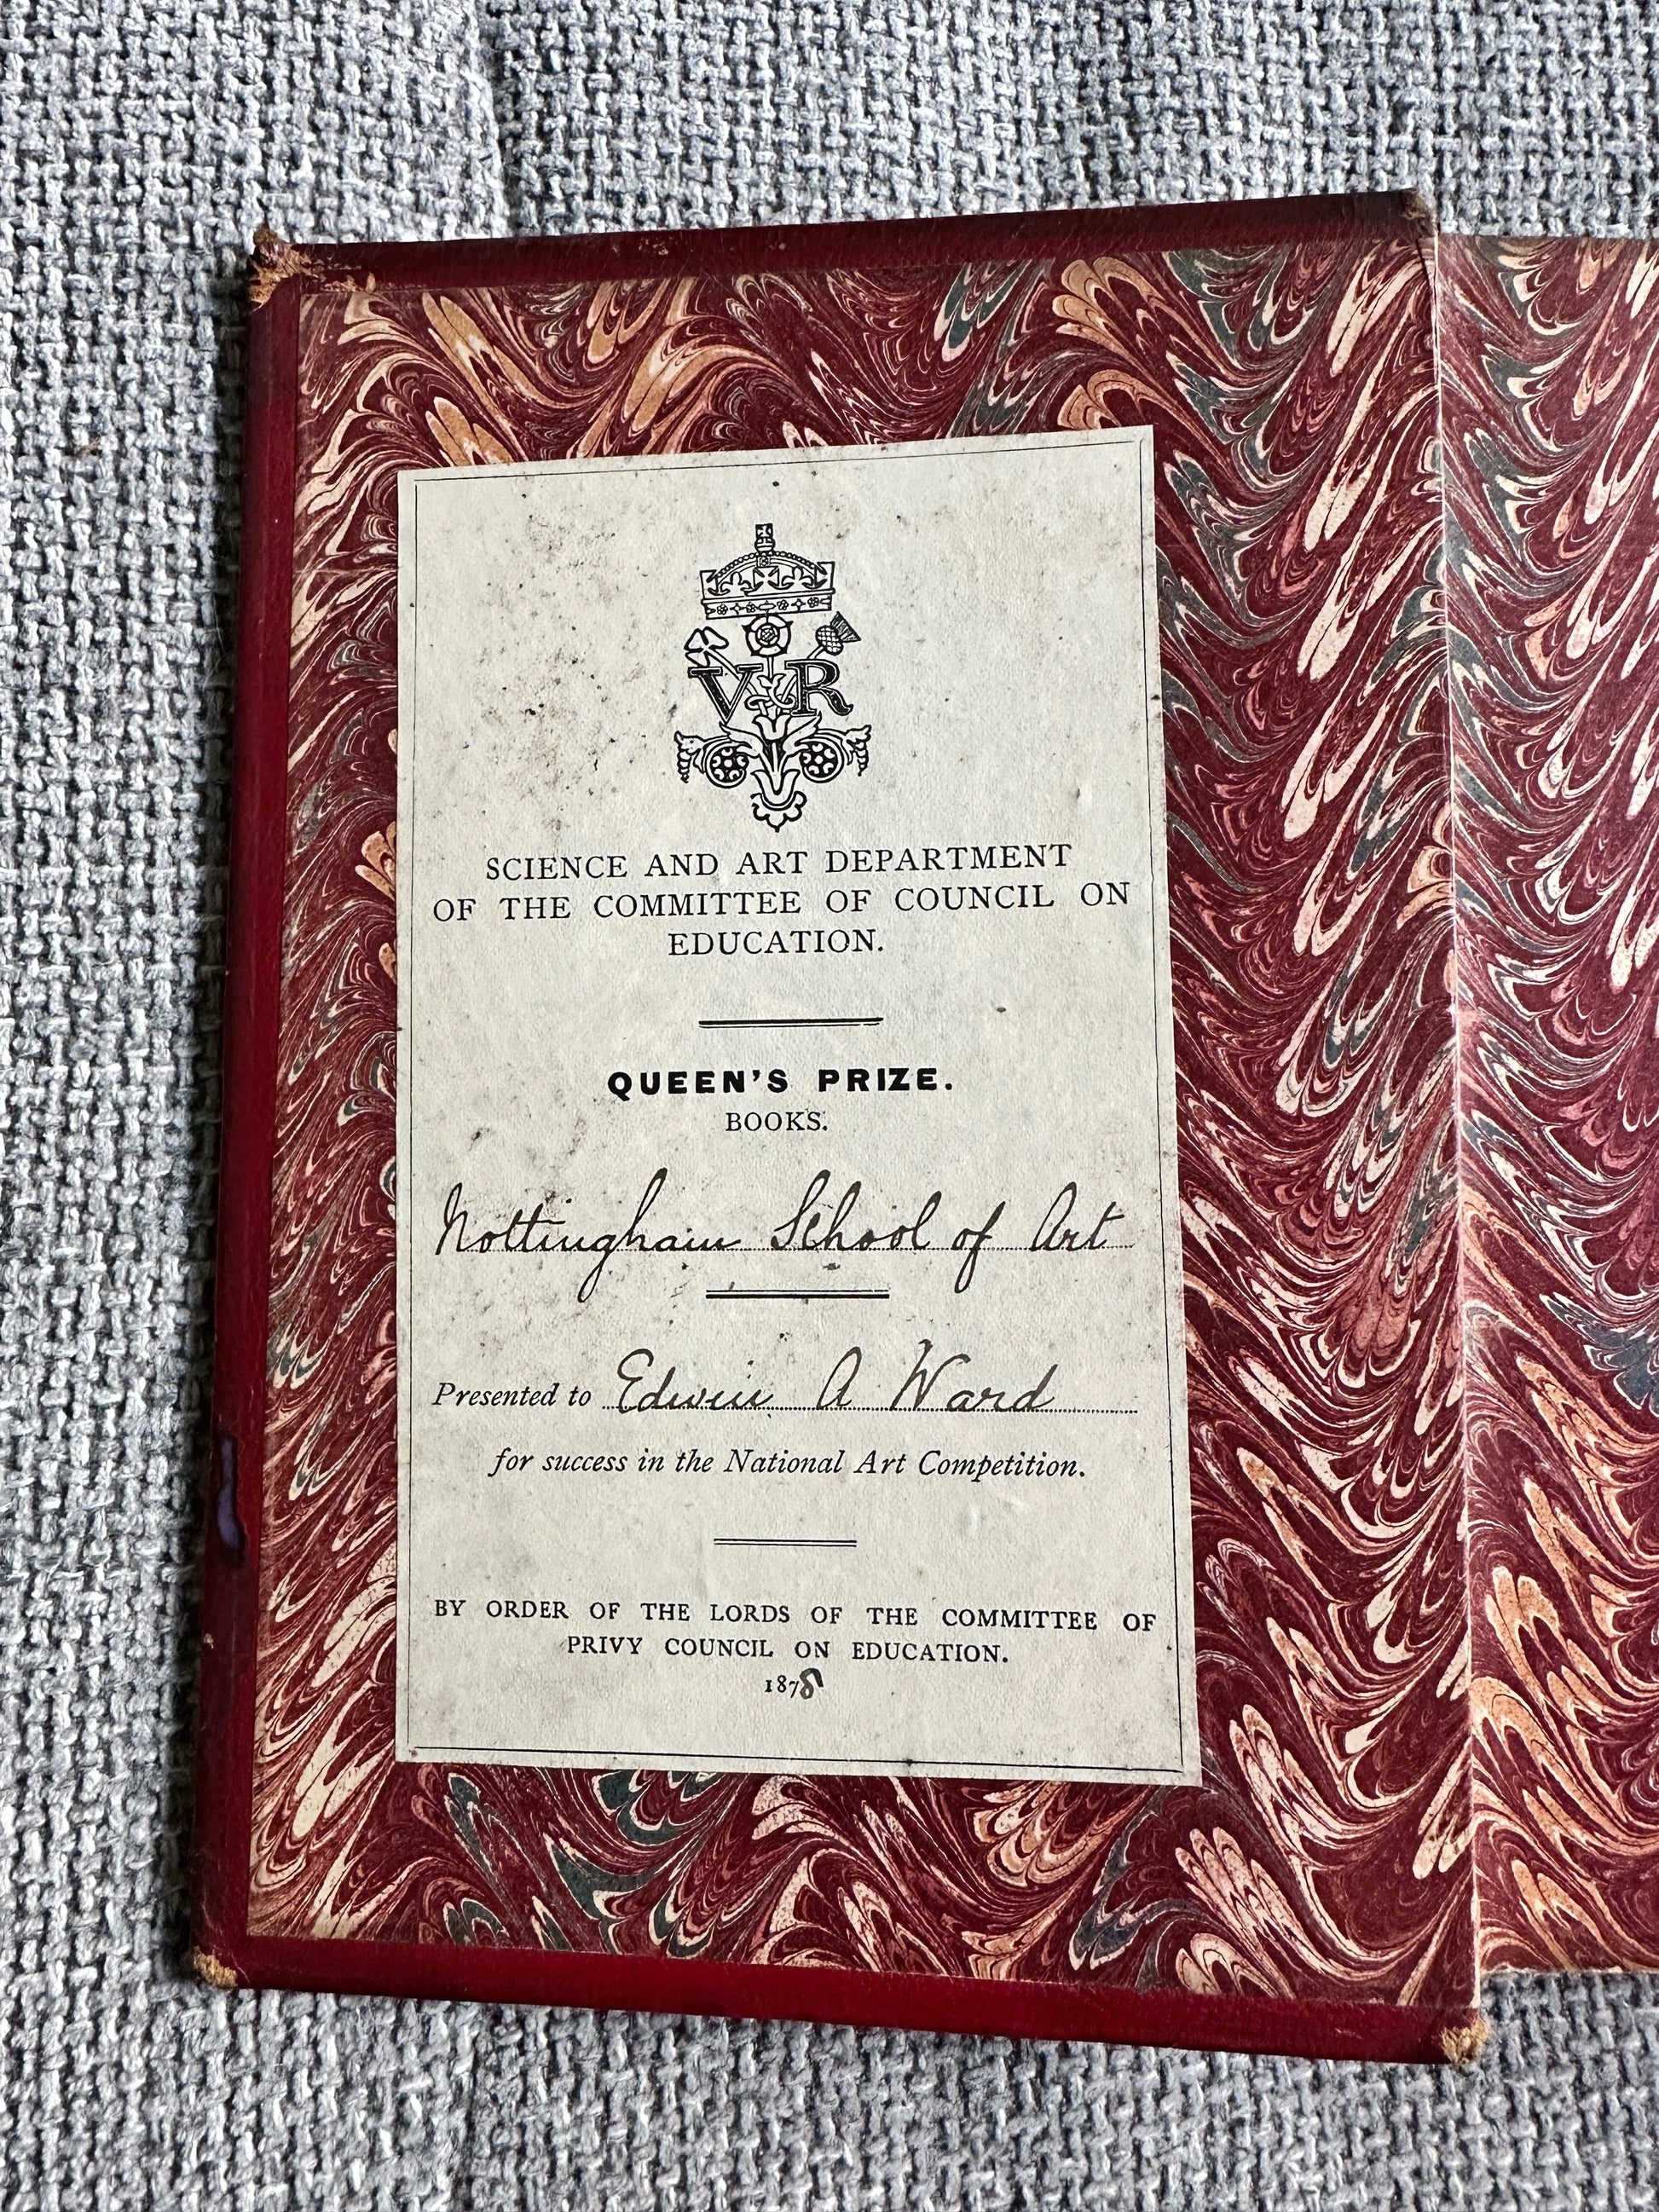 VR
SCIENCE AND ART DEPARTMENT
OF THE COMMITTEE OF COUNCIL ON
EDUCATION.
QUEEN'S PRIZE.
BOOKS.
Nottingham School of Art
Presented to Edwin A Ward
for success in the National Art Competition.
BY ORDER OF THE LORDS OF THE COMMITTEE OF
PRIVY COUNCIL ON EDUCATION.
1878